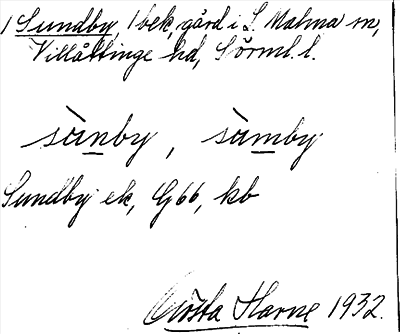 1 Sundby, 1 bek, gård i L. Malma sn,
Villåttinge hd, Sörml. l.
sànby, sàmby
Sundby ek, G66, kb
Gösta Harne 1932.